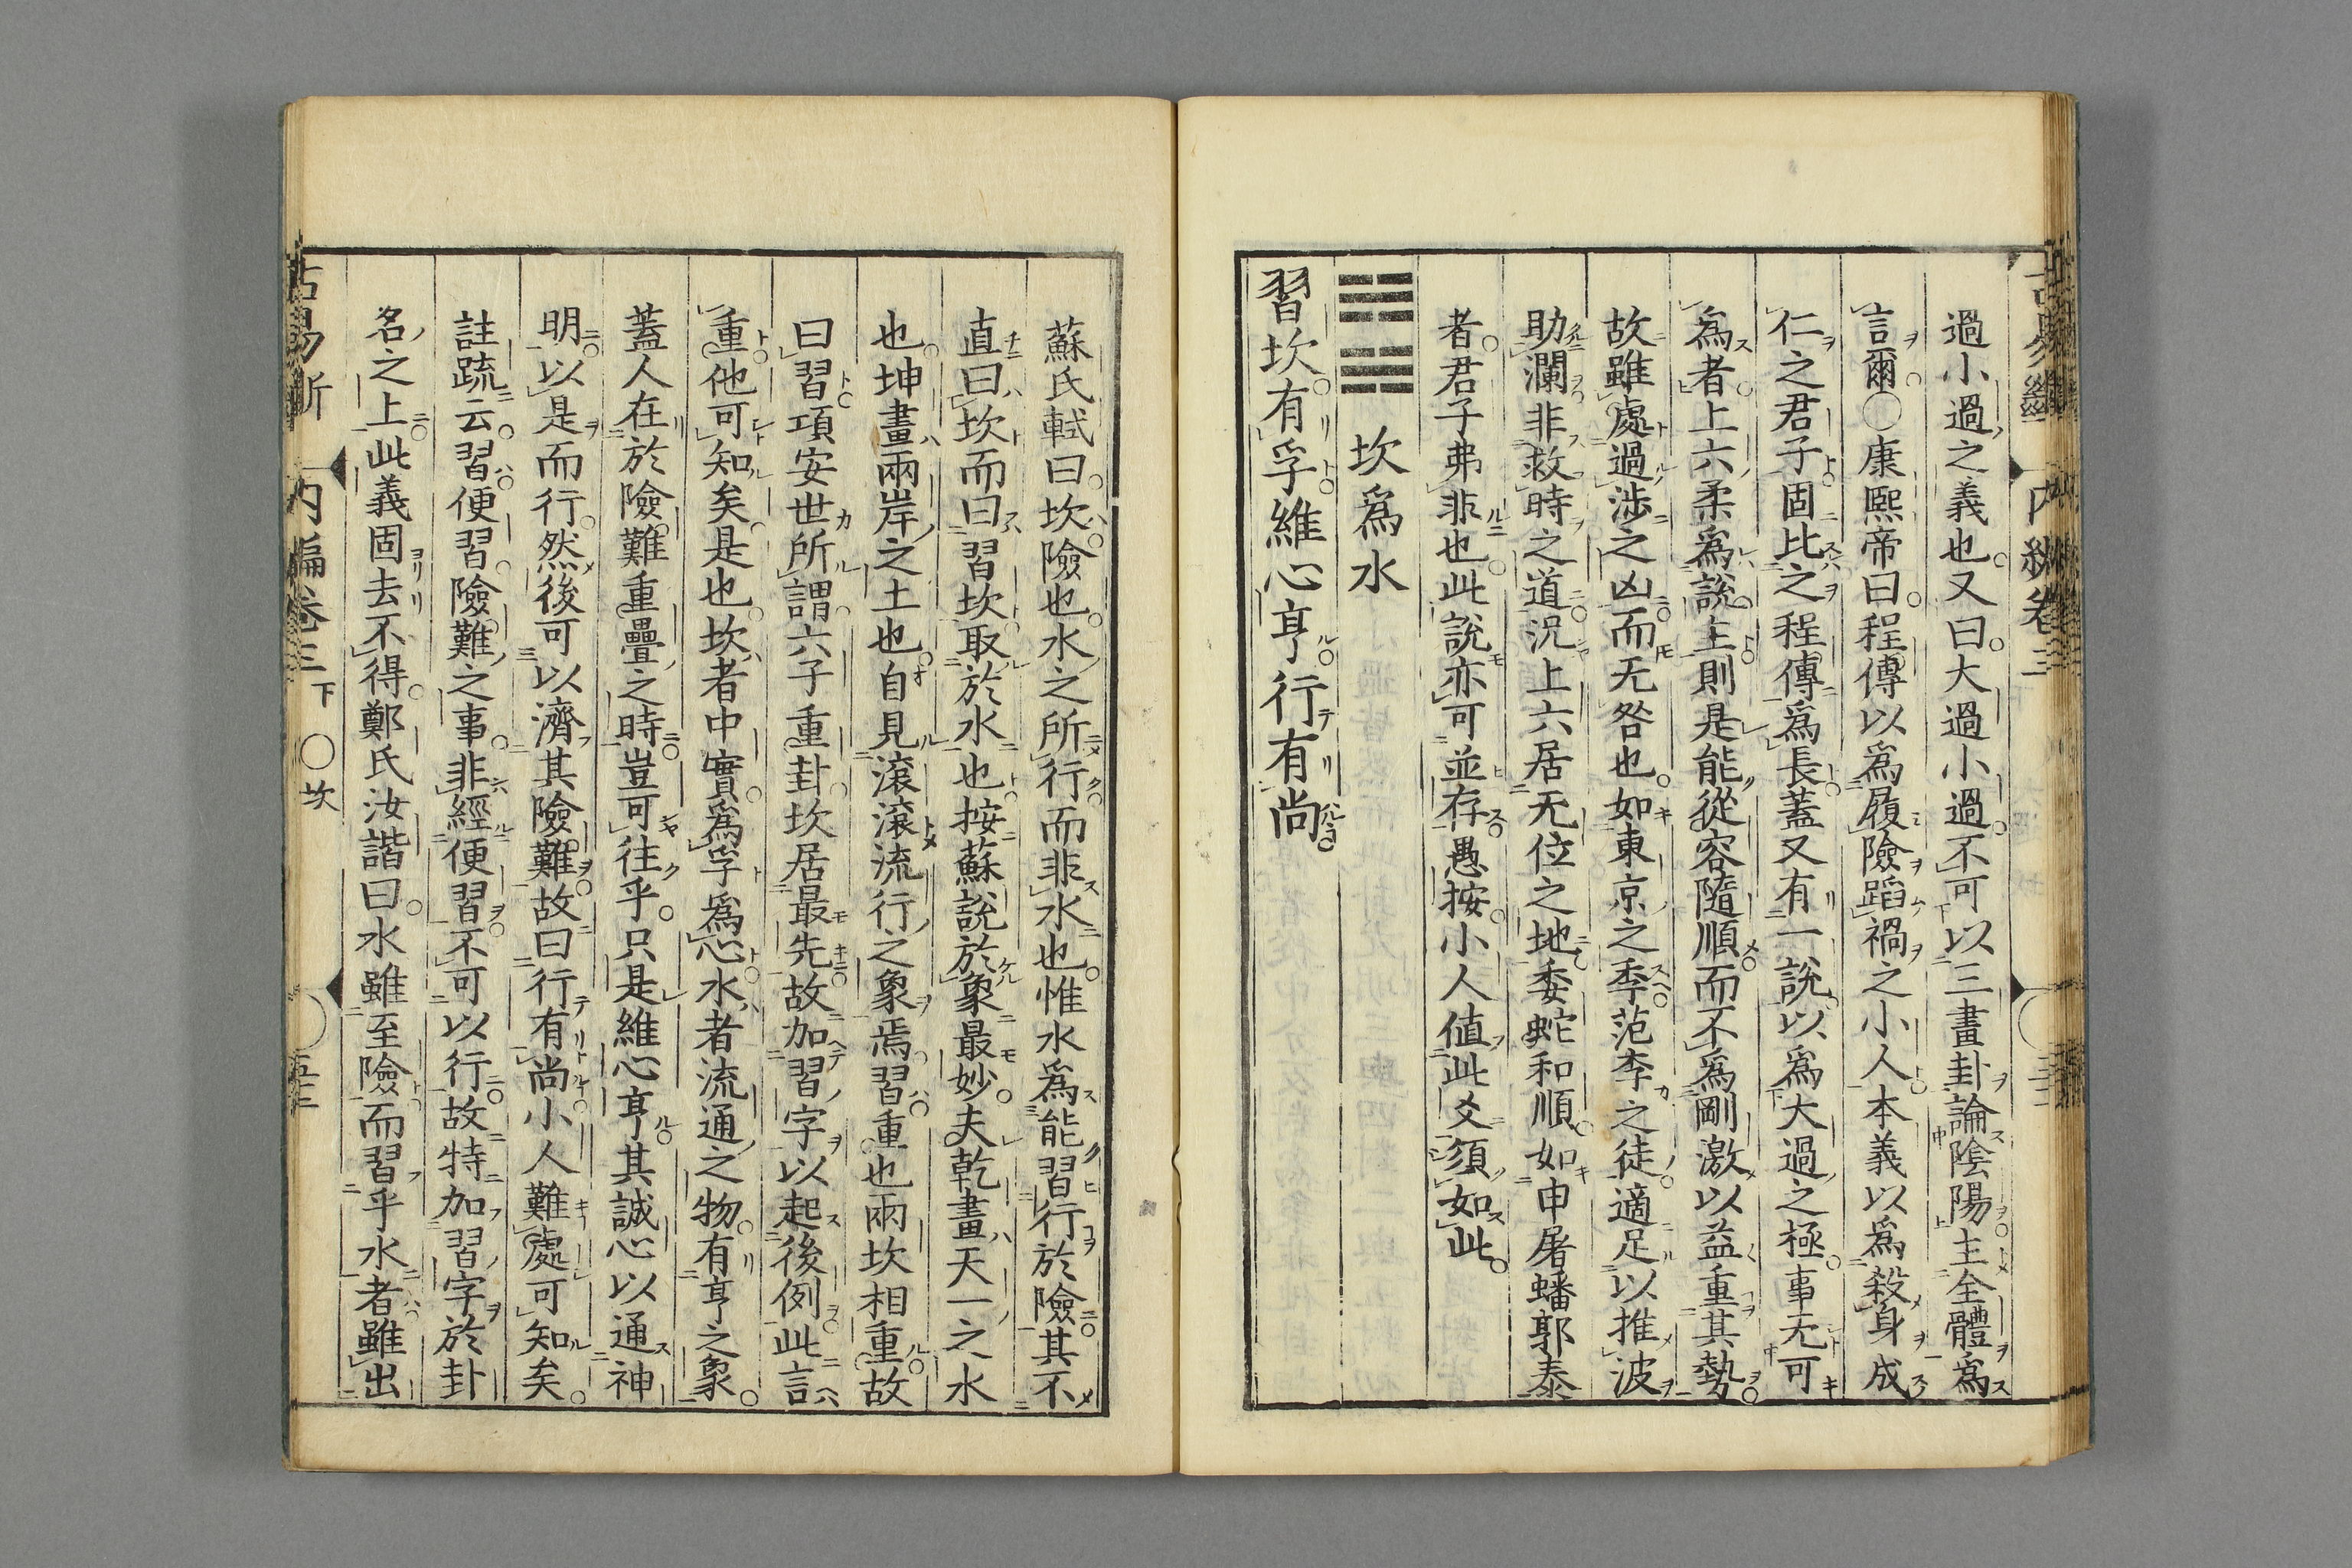 過小過之義也又曰大過小過不可以三畫卦論陰陽主全體為
言爾〇康熙帝曰程傳以爲履險蹈禍之小人本義以爲殺身成
仁之君子固比之程傳爲長蓋又有一說以爲大過之極事无可
爲者上六柔爲說主則是能從容隨順而不爲剛激以益重其勢
故雖處過涉之凶而无咎也如東京之季范李之徒適足以推波
助瀾非救時之道況上六居无位之地委蛇和順如申屠蟠郭泰
者君子弗非也此說亦可並存愚按小人値此爻須如此
坎爲水
習坎有孚維心亨行有尚
蘇氏軾曰坎險也水之所行而非水也惟水爲能習行於險其不
直曰坎而曰習坎取於水也按蘇說於象最妙夫乾畫天一之水
也坤畫兩岸之土也自見滾滾流行之象焉習重也兩坎相重故
曰習項安世所謂六子重卦坎居最先故加習字以起後例此言
重他可知矣是也坎者中實爲孚爲心水者流通之物有亨之象
蓋人在於險難重疊之時豈可往乎只是維心亨其誠心以通神
明以是而行然後可以濟其險難故曰行有尚小人難處可知矣
註疏云習便習險難之事非經便習不可以行故特加習字於卦
名之上此義固去不得鄭氏汝諧曰水雖至險而習乎水者雖出
古易斷 內編卷三下 〇坎 五三